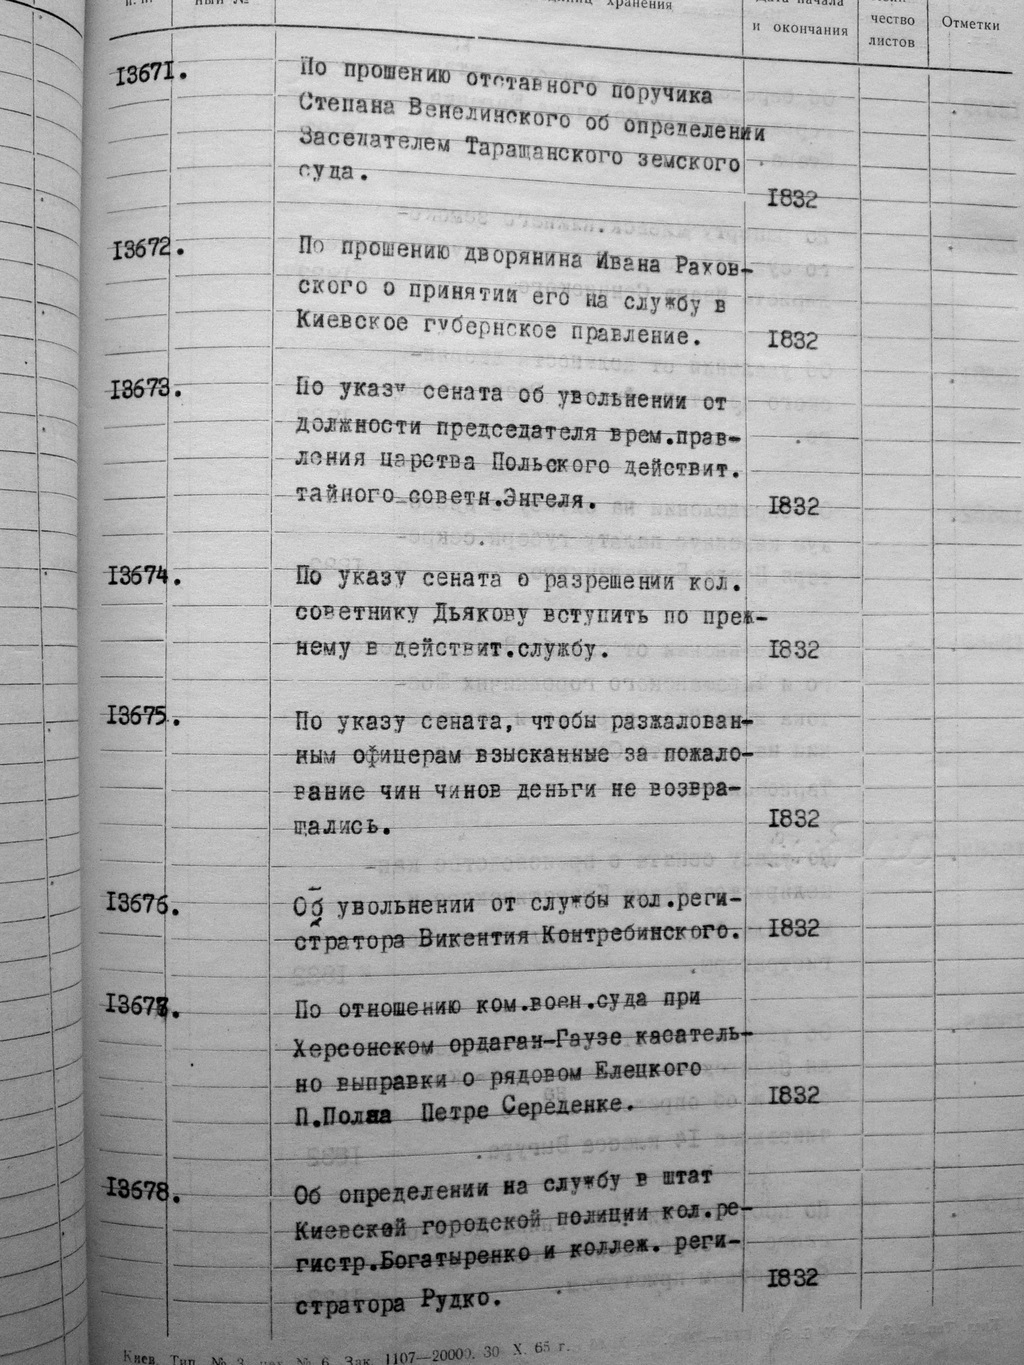 п. п.
ный №
единиц хранения
Дата начала
и окончания
чество
листов
Отметки
I3671.
По прошению отставного поручика
Степана Венелинского об определении
Заседателем Таращанского земского
суда.
I832
I3672.
По прошению дворянина Ивана Рахов-
ского о принятии его на службу в
Киевское губернское правление.
I832
I3673.
По указу сената об увольнении от
должности председателя врем.прав-
ления царства Польского действит.
тайного советн.Энгеля.
I832
I3674.
По указу сената о разрешении кол.
советнику Дьякову вступить по преж-
нему в действит.службу.
I832
I3675.
По указу сената, чтобы разжалован-
ным офицерам взысканные за пожало-
вание чин чинов деньги не возвра-
щались.
I832
I3676.
Об увольнении от службы кол.реги-
стратора Викентия Контребинского.
I832
I3677.
По отношению ком.воен.суда при
Херсонском ордаган-Гаузе касатель-
но выправки о рядовом Елецкого
П.Полка Петре Середенке.
I832
I3678.
Об определении на службу в штат
Киевской городской полиции кол.ре-
гистр.Богатыренко и коллеж. реги-
стратора Рудко.
I832
Киев. Тип. № 3, № 6. Зак. 1107—20000. 30 X. 65 г.